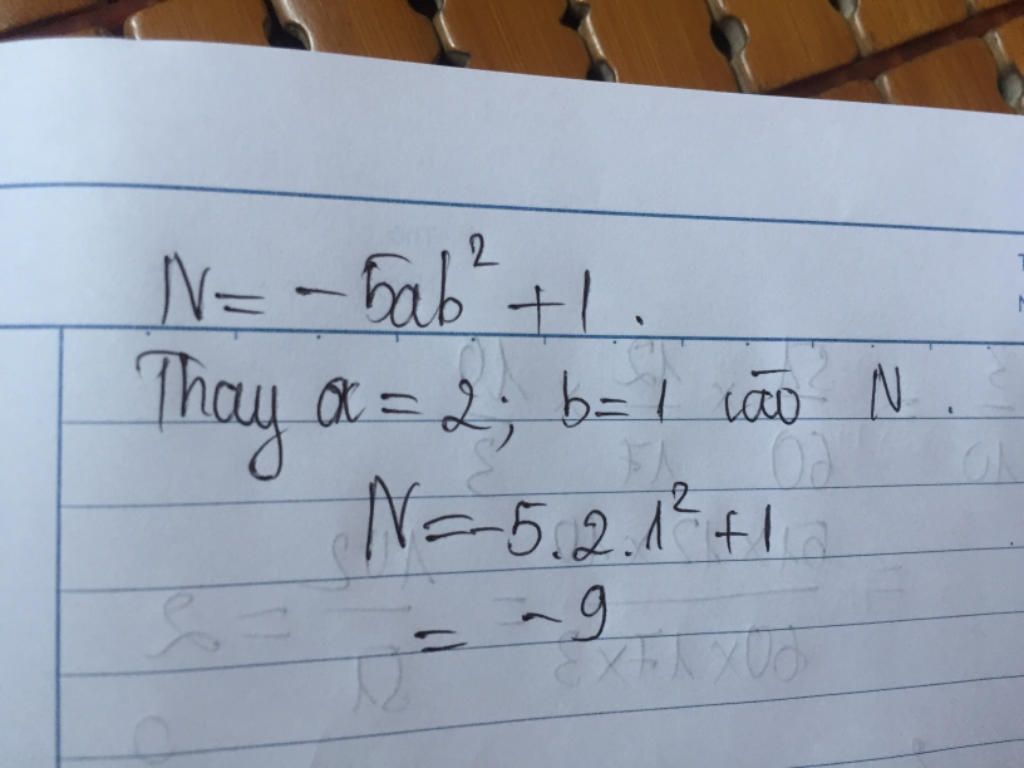 N = - 5ab² + 1 .
Thay a = 2; b = 1 vào N .
N = -5.2.1² + 1
= - 9